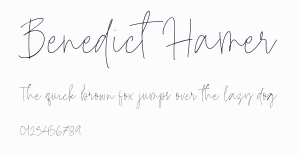 Benedict Hamer
The quick brown fox jumps over the lazy dog
0123456789